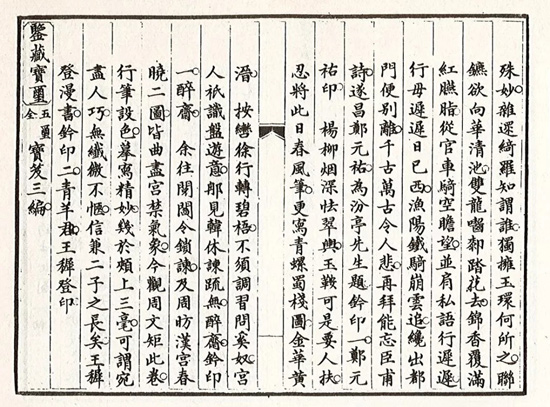 殊妙雜遝綺羅知謂誰獨擁玉環何所之聯
鑣欲向華清池雙龍嚙卻踏花去錦香覆滿
紅臙脂從官車騎空瞻望並肩私語行遲遲
行毋遲遲日已西漁陽鐵騎崩雲追纔出都
門便別離千古萬古令人悲再拜能忘臣甫
詩遂昌鄭元祐為汾亭先生題鈐印一鄭元
祐印 楊柳烟深怯翠輿玉鞍可是要人扶
忍將此日春風筆更寫青螺蜀棧圖金華黃
溍 按轡徐行轉碧梧不須調習問奚奴宮
人祇識盤遊意郍見韓休諫疏無醉齋鈐印
一醉齋 余往聞閻令鎖諫及周昉漢宮春
曉二圖皆曲盡宮禁氣象今觀周文矩此卷
行筆設色摹寫精妙幾於頰上三毫可謂宛
盡人巧無纖微不愜信兼二子之長矣王穉
登漫書鈐印二青羊君王穉登印
鑒藏寶璽 五璽全 寶笈三編